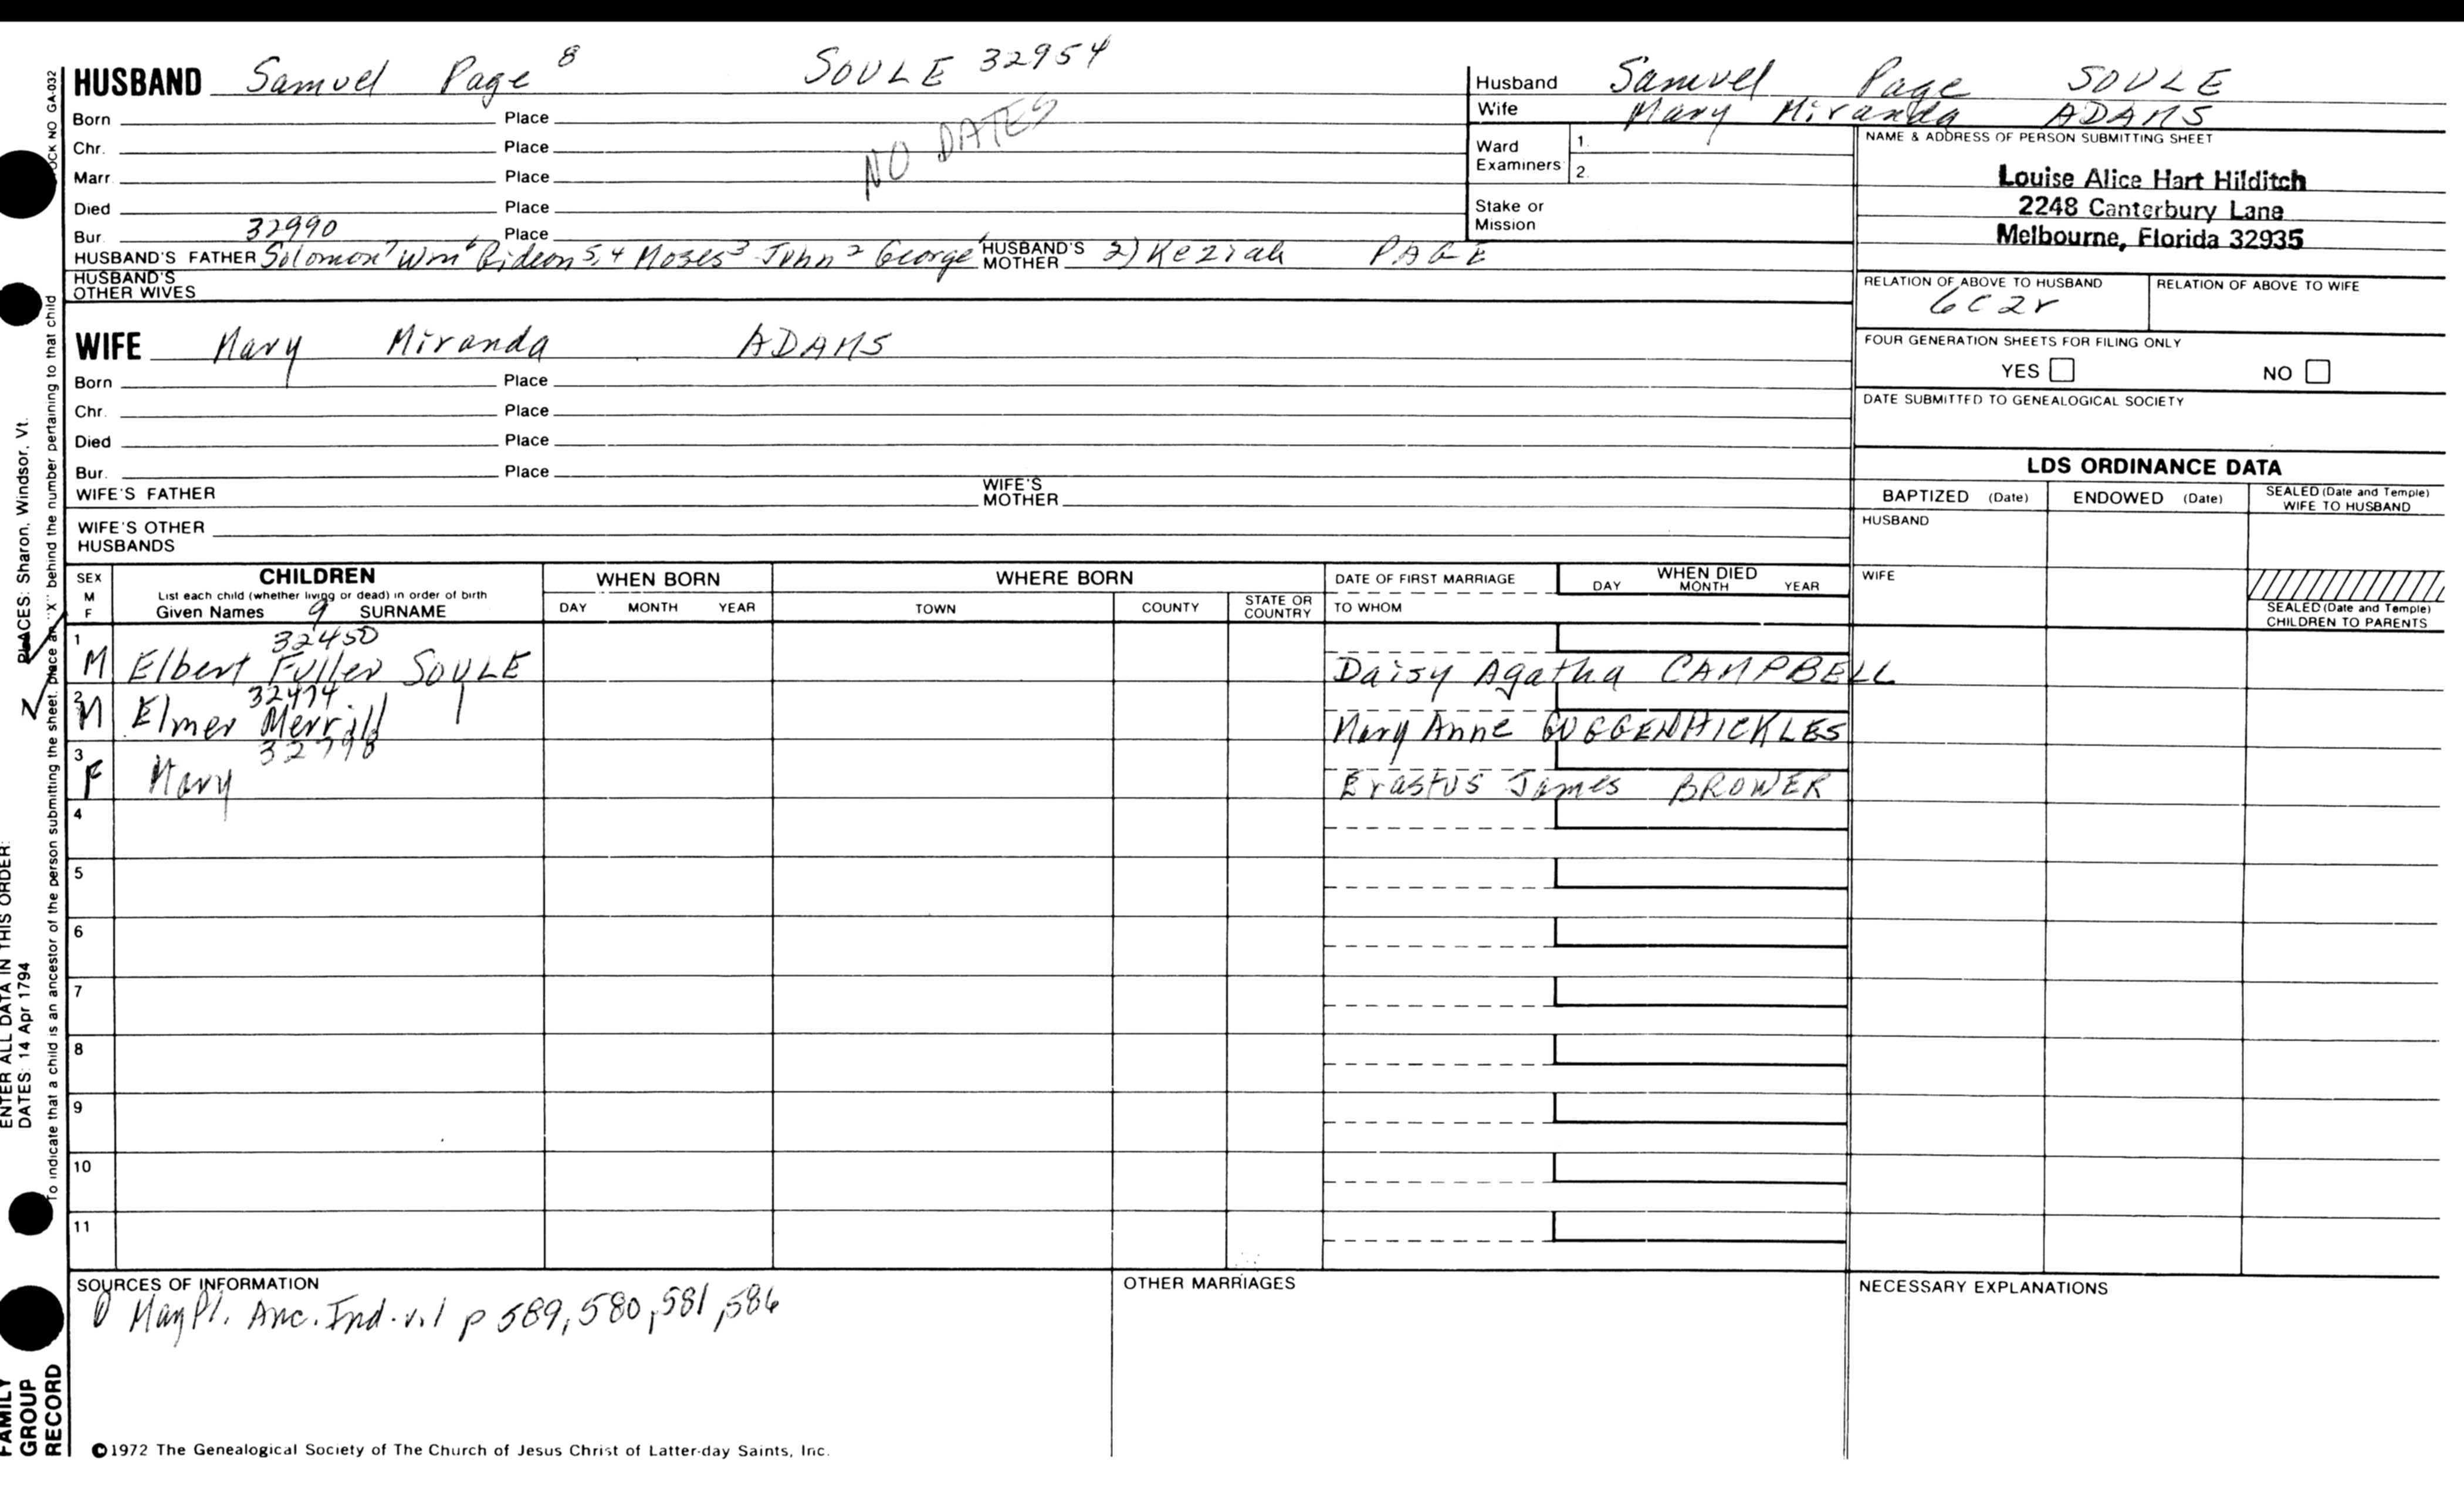 HUSBAND Samuel Page 8 SOULE 32954
Born Place
Chr. Place
NO DATES
Marr. Place
Died Place
32990
Bur. Place
HUSBAND'S FATHER Solomon 7 Wm 6 Gideon 5,4 Moses 3 John 2 George 1 HUSBAND'S MOTHER 2) Keziah PAGE
HUSBAND'S OTHER WIVES
WIFE Mary Miranda ADAMS
Born Place
Chr. Place
Died Place
Bur. Place
WIFE'S FATHER WIFE'S MOTHER
WIFE'S OTHER HUSBANDS
Husband Samuel Page SOULE
Wife Mary Miranda ADAMS
Ward Examiners 1. 2.
Stake or Mission
NAME & ADDRESS OF PERSON SUBMITTING SHEET
Louise Alice Hart Hilditch
2248 Canterbury Lane
Melbourne, Florida 32935
RELATION OF ABOVE TO HUSBAND RELATION OF ABOVE TO WIFE
6C2r
FOUR GENERATION SHEETS FOR FILING ONLY
YES NO
DATE SUBMITTED TO GENEALOGICAL SOCIETY
LDS ORDINANCE DATA
BAPTIZED (Date) ENDOWED (Date) SEALED (Date and Temple) WIFE TO HUSBAND
HUSBAND
WIFE
SEALED (Date and Temple) CHILDREN TO PARENTS
SEX M F CHILDREN WHEN BORN WHERE BORN DATE OF FIRST MARRIAGE WHEN DIED
List each child (whether living or dead) in order of birth
Given Names 9 SURNAME DAY MONTH YEAR TOWN COUNTY STATE OR COUNTRY TO WHOM DAY MONTH YEAR
32450
1 M Elbert Fuller SOULE Daisy Agatha CAMPBELL
32474
2 M Elmer Merrill Mary Anne GUGGENHICKLES
32798
3 F Mary Erastus James BROWER
4
5
6
7
8
9
10
11
SOURCES OF INFORMATION OTHER MARRIAGES NECESSARY EXPLANATIONS
May Pl. Anc. Ind. v.1 p 589, 580, 581, 586
©1972 The Genealogical Society of The Church of Jesus Christ of Latter-day Saints, Inc.
FAMILY GROUP RECORD
ENTER ALL DATA IN THIS ORDER:
DATES: 14 Apr 1794 PLACES: Sharon, Windsor, Vt.
To indicate that a child is an ancestor of the person submitting the sheet, place an "X" behind the number pertaining to that child
NO GA-032